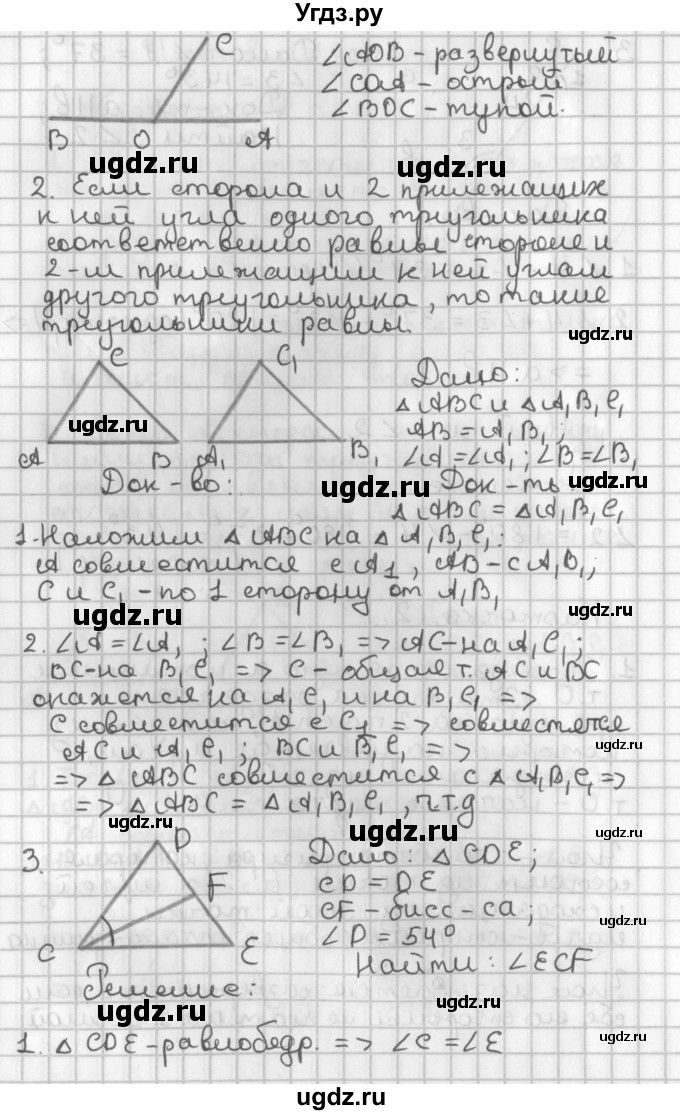 Угдз.ру
C
∠AOB - развернутый
∠COA - острый
∠BOC - тупой.
B O A
ugdz.ru ugdz.ru
2. Если сторона и 2 прилежащих
к ней угла одного треугольника
соответственно равны стороне и
2-м прилежащим к ней углам
другого треугольника, то такие
треугольники равны.
ugdz.ru
C C₁
Дано:
△ABC и △A₁B₁C₁
ugdz.ru
AB = A₁B₁;
A B A₁ B₁
∠A = ∠A₁; ∠B = ∠B₁
Док-во: ugdz.ru Док-ть:
△ABC = △A₁B₁C₁
ugdz.ru
1. Наложим △ABC на △A₁B₁C₁:
A совместится с A₁, AB - с A₁B₁;
C и C₁ - по 1 сторону от A₁B₁
ugdz.ru ugdz.ru
2. ∠A = ∠A₁; ∠B = ∠B₁ => AC - на A₁C₁;
BC - на B₁C₁ => C - общая т. AC и BC
окажется на A₁C₁ и на B₁C₁ =>
C совместится с C₁ => совместятся
AC и A₁C₁; BC и B₁C₁ =>
ugdz.ru
=> △ABC совместится с △A₁B₁C₁ =>
=> △ABC = △A₁B₁C₁, ч.т.д
ugdz.ru ugdz.ru
3.
D
F
C E
Дано: △CDE;
CD = DE
CF - бисс-са;
ugdz.ru
∠D = 54°
Найти: ∠ECF
Решение:
ugdz.ru ugdz.ru
1. △CDE - равнобедр. => ∠C = ∠E
ugdz.ru
ugdz.ru